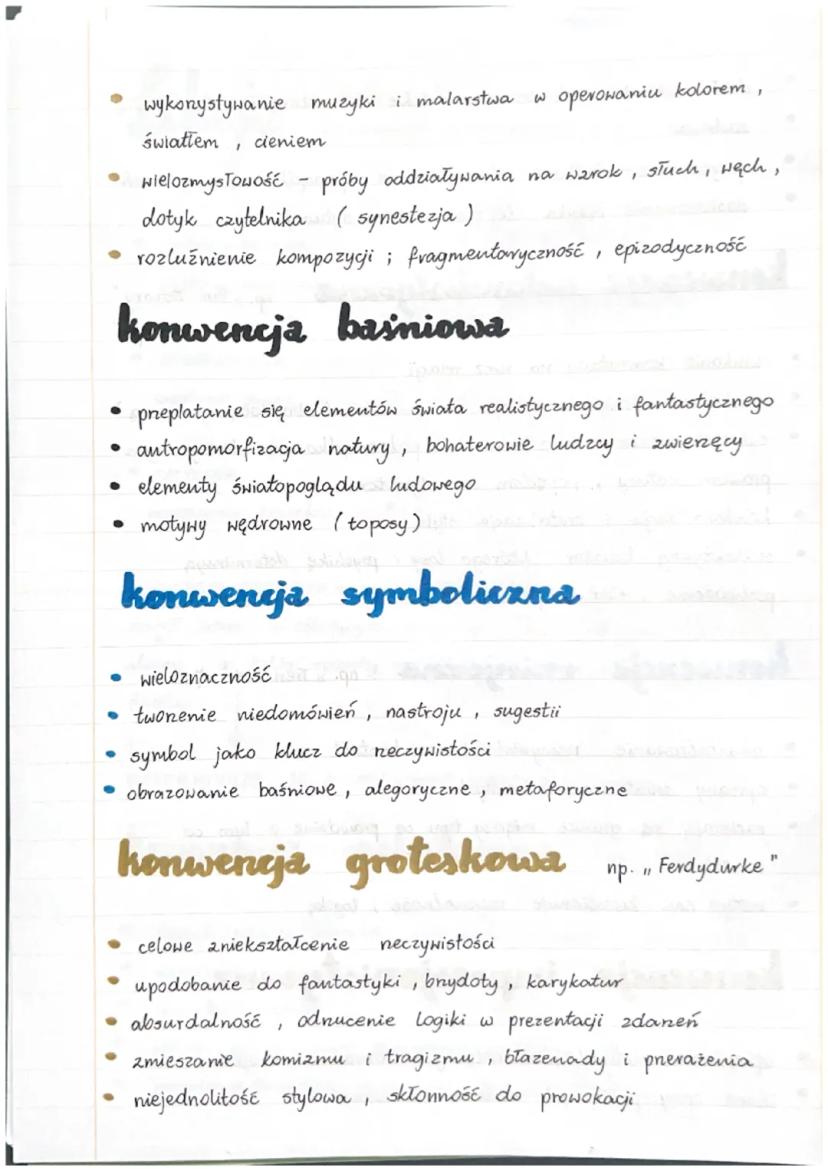 wykorzystywanie muzyki i malarstwa w operowaniu kolorem,
światłem, cieniem
wielozmysłowość - próby oddziaływania na wzrok, słuch, węch,
dotyk czytelnika (synestezja)
rozluźnienie kompozycji; fragmentaryczność, epizodyczność
konwencja baśniowa
przeplatanie się elementów świata realistycznego i fantastycznego
antropomorfizacja natury, bohaterowie ludzcy i zwierzęcy
elementy światopoglądu ludowego
motywy wędrowne (toposy)
konwencja symboliczna
wieloznaczność
tworzenie niedomówień, nastroju, sugestii
symbol jako klucz do rzeczywistości
obrazowanie baśniowe, alegoryczne, metaforyczne
konwencja groteskowa np. „Ferdydurke"
celowe zniekształcenie rzeczywistości
upodobanie do fantastyki, brzydoty, karykatur
absurdalność, odrzucenie logiki w prezentacji zdarzeń
zmieszanie komizmu i tragizmu, błazenady i przerażenia
niejednolitość stylowa, skłonność do prowokacji